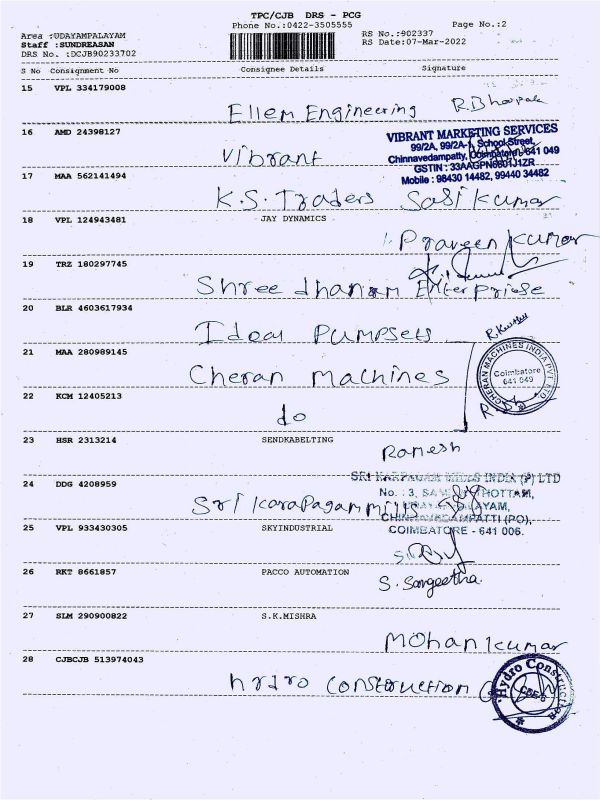 TPC/CJB DRS - PCG
Phone No.:0422-3505555
Page No.:2
Area :UDAYAMPALAYAM
RS No.:902337
Staff :SUNDREASAN
RS Date:07-Mar-2022
DRS No. :DCJB90233702
S No Consignment No Consignee Details Signature
15 VPL 334179008
Ellem Engineering
16 AMD 24398127
VIBRANT MARKETING SERVICES
99/2A, 99/2A-1, School Street,
Chinnavedampatty, Coimbatore - 641 049
Vibrant
Mobile : 98430 14482, 99440 34482
17 MAA 562141494
K.S. Traders Sasikumar
18 VPL 124943481 JAY DYNAMICS
Praveen Kumar
19 TRZ 180297745
Shree dhanam Enterpriese
20 BLR 4603617934
Ideal Pumpsets
21 MAA 280989145
Cheran Machines
CHERAN MACHINES INDIA PVT LTD
Coimbatore
641 049
22 KCM 12405213
do
23 HSR 2313214 SENDKABELTING
Ramesh
24 DDG 4208959
SRI KARPAGAM MILLS INDIA (P) LTD
No. : 3,
CHINNAVEDAMPATTI (PO),
COIMBATORE - 641 006.
Sri Karapagam mills
25 VPL 933430305 SKYINDUSTRIAL
26 RKT 8661857 PACCO AUTOMATION
S. Sangeetha
27 SLM 290900822 S.K.MISHRA
Mohankumar
28 CJBCJB 513974043
hydro construction
Hydro Construction